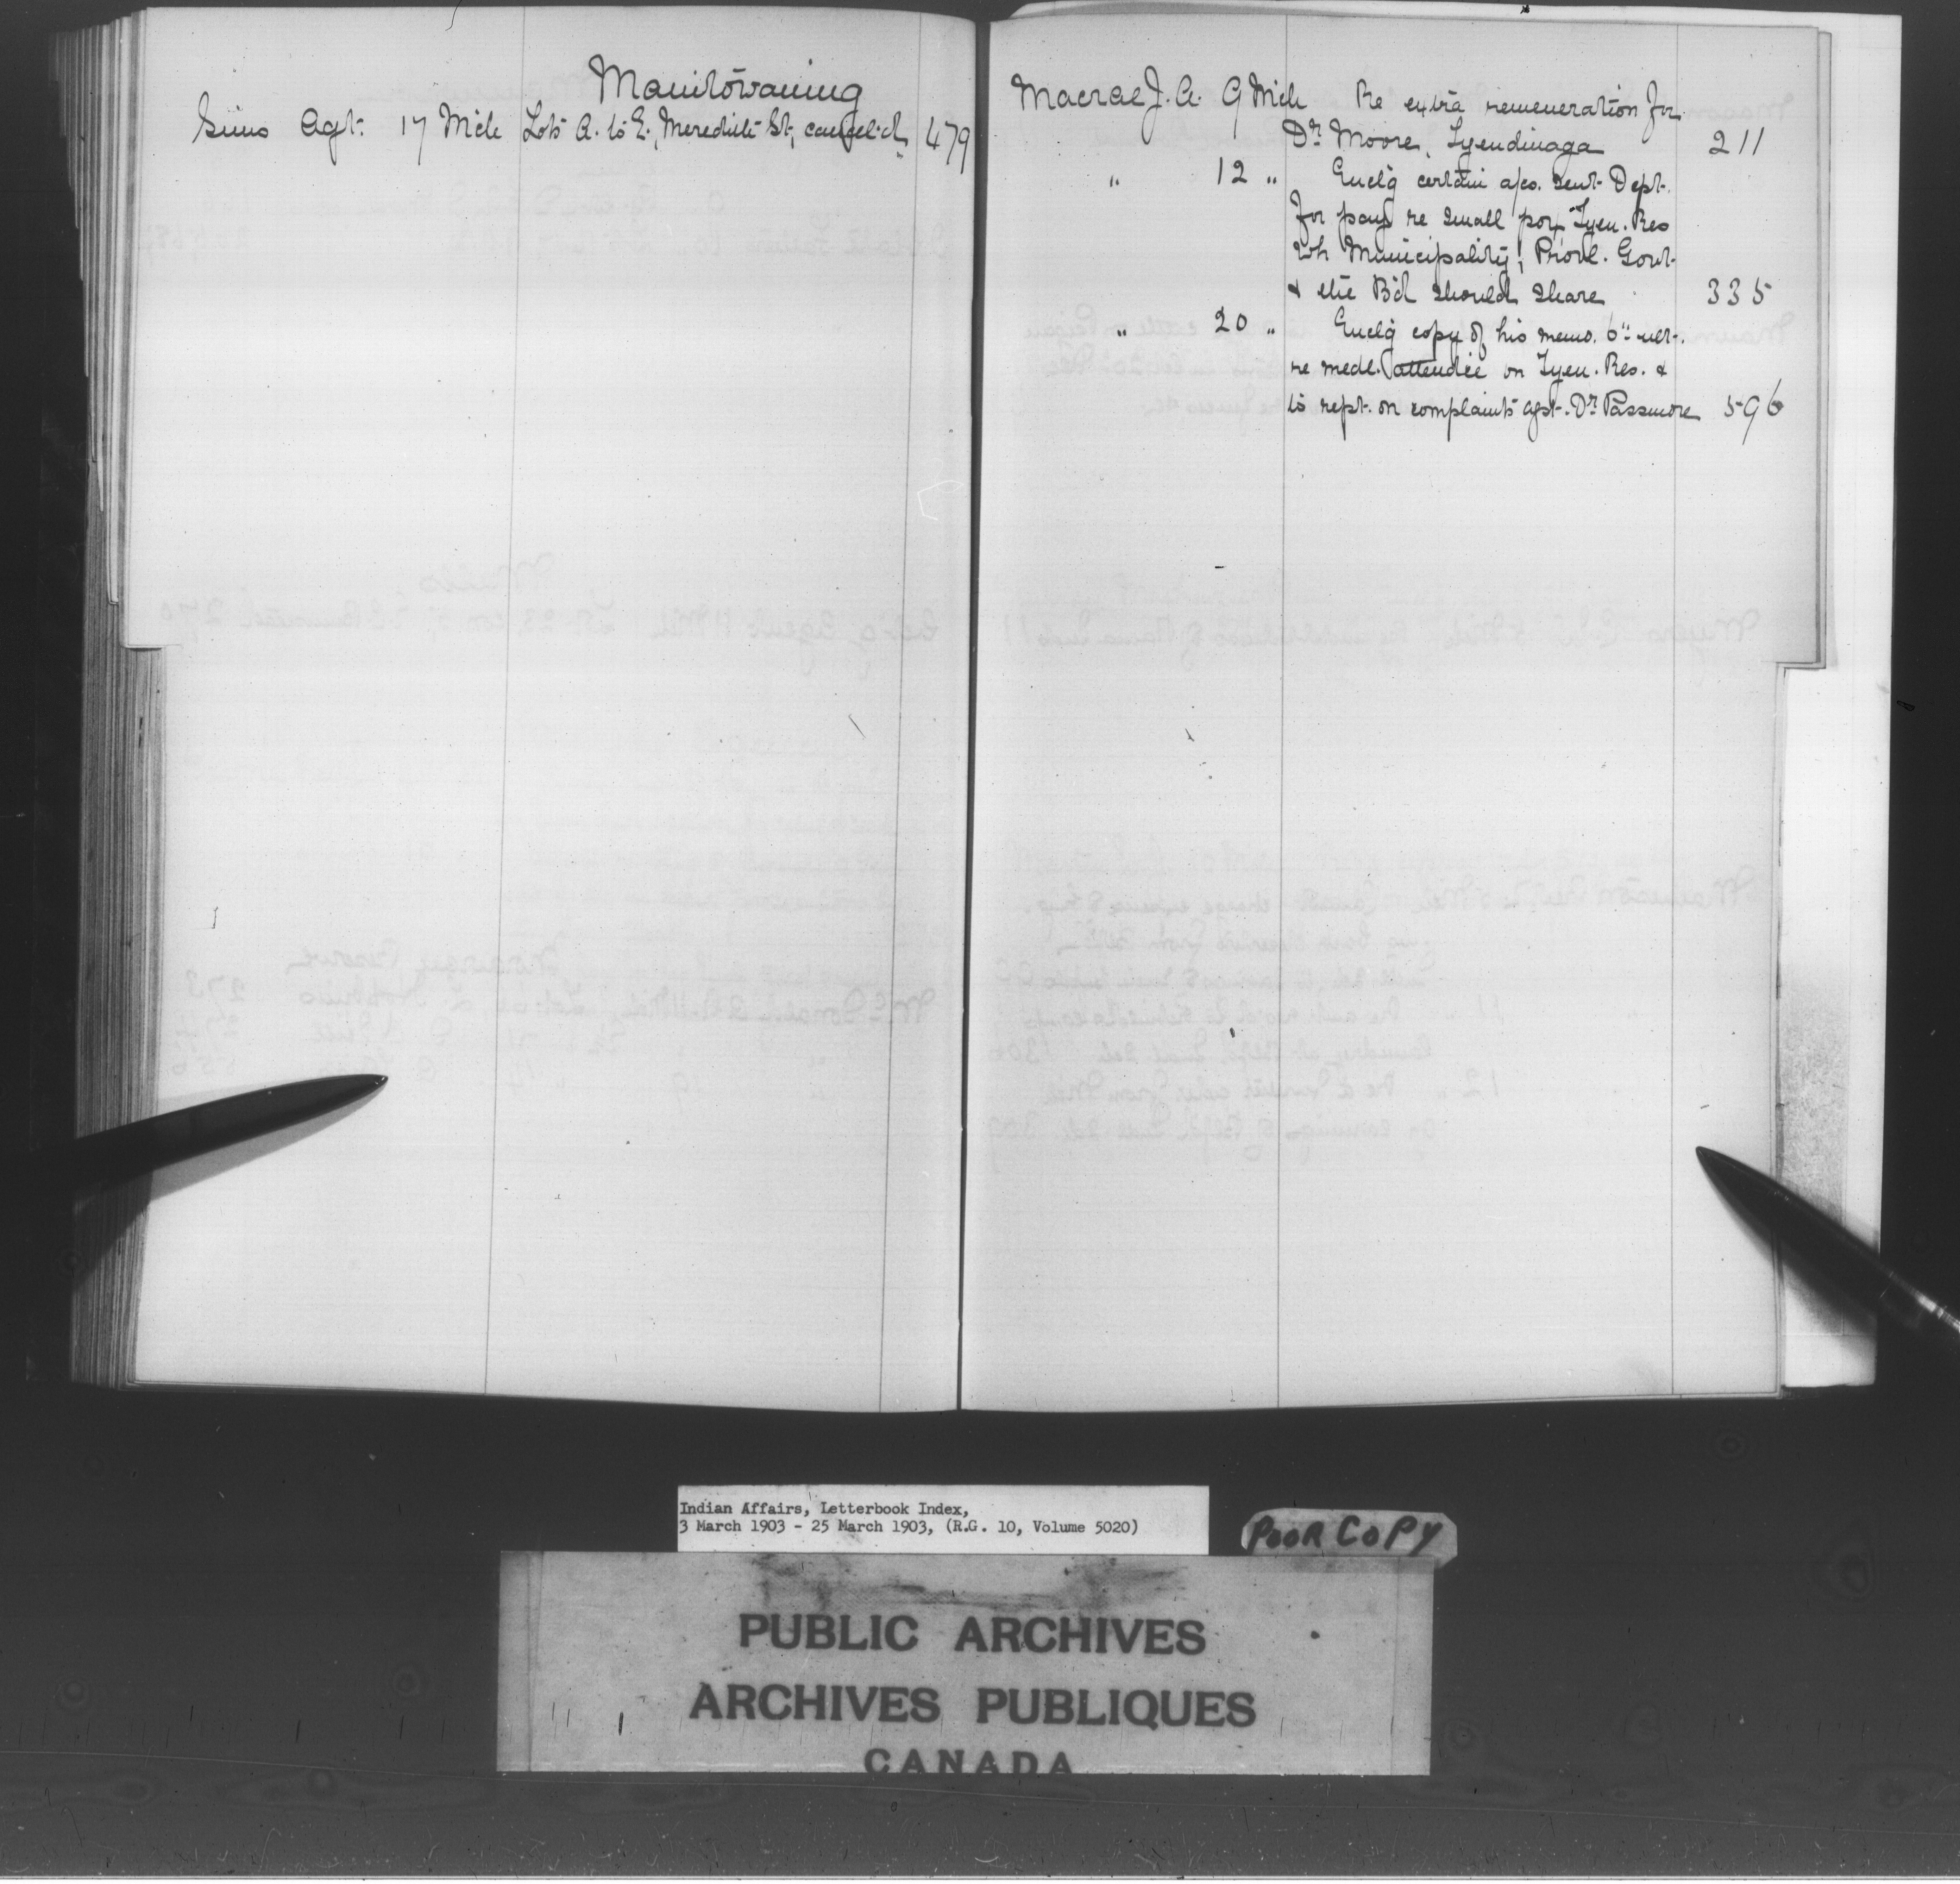 Manitowaning
Sims Agt. 17 Mch Lots A. to E., Meredith St., cancel'd 479
Macrae J. A. 9 Mch Re extra remeneration for
Dr. Moore, Tyendinaga 211
" 12 " Encl'g certain a/cs. sent Dept.
for payt re small pox Tyen. Res
wh Municipality, Provl. Govt.
& the B'd should share 335
" 20 " Encl'g copy of his memo. 6" ult.
re medl. attendce on Tyen. Res. &
to rept. on complaints agst. Dr. Passmore 596
Indian Affairs, Letterbook Index,
3 March 1903 - 25 March 1903, (R.G. 10, Volume 5020)
POOR COPY
PUBLIC ARCHIVES
ARCHIVES PUBLIQUES
CANADA